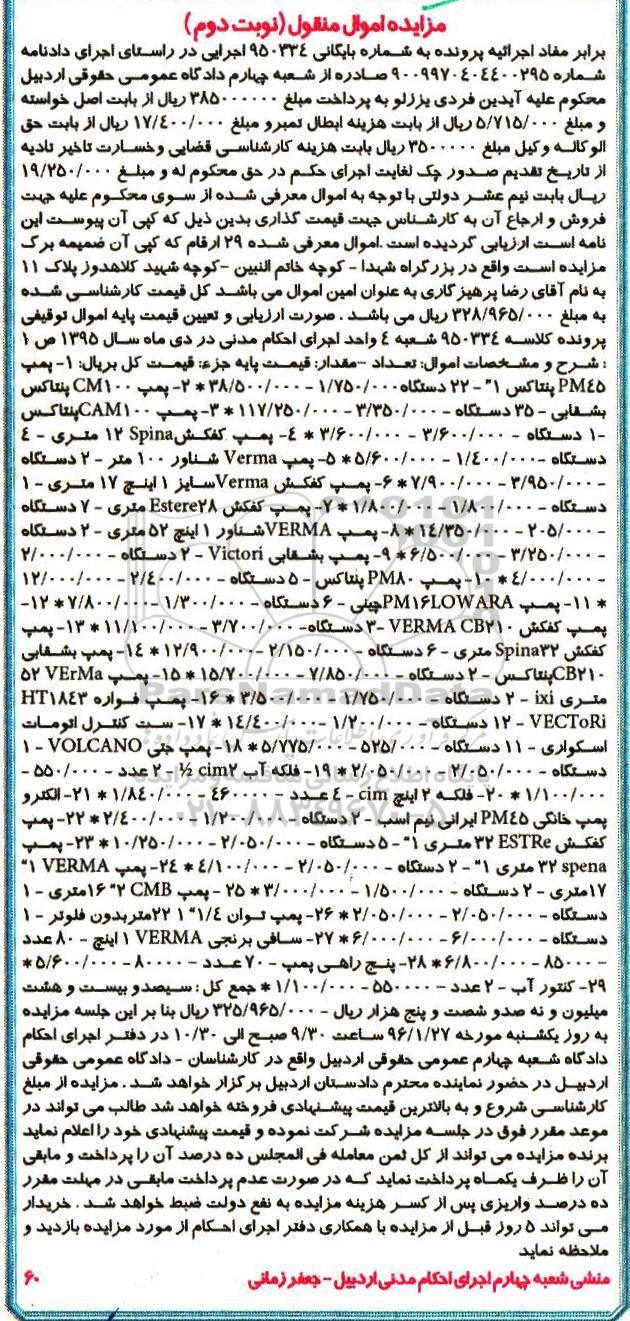 مزایده اموال منقول (نوبت دوم)
برابر مفاد اجرائیه پرونده به شماره بایگانی ۹۵۰۳۳۴ اجرایی در راستای اجرای دادنامه
شماره ۹۰۰۹۹۷۰۴۰۴۴۰۰۲۹۵ صادره از شعبه چهارم دادگاه عمومی حقوقی اردبیل
محکوم علیه آیدین فردی یزلو به پرداخت مبلغ ۳۸۵۰۰۰۰۰۰ ریال از بابت اصل خواسته
و مبلغ ۵/۷۱۵/۰۰۰ ریال از بابت هزینه ابطال تمبر و مبلغ ۱۷/۴۰۰/۰۰۰ ریال از بابت حق
الوکاله وکیل مبلغ ۳۵۰۰۰۰۰ ریال بابت هزینه کارشناسی قضایی وخسارت تاخیر تادیه
از تاریخ تقدیم صدور چک لغایت اجرای حکم در حق محکوم له و مبلغ ۱۹/۲۵۰/۰۰۰
ریال بابت نیم عشر دولتی با توجه به اموال معرفی شده از سوی محکوم علیه جهت
فروش و ارجاع آن به کارشناس جهت قیمت گذاری بدین ذیل که کپی آن پیوست این
نامه است ارزیابی گردیده است .اموال معرفی شده ۲۹ ارقام که کپی آن ضمیمه برگ
مزایده است واقع در بزرگراه شهدا - کوچه خاتم النبین -کوچه شهید کلاهدوز پلاک ۱۱
به نام آقای رضا پرهیزگاری به عنوان امین اموال می باشد کل قیمت کارشناسی شده
به مبلغ ۳۲۸/۹۶۵/۰۰۰ ریال می باشد . صورت ارزیابی و تعیین قیمت پایه اموال توقیفی
پرونده کلاسه ۹۵۰۳۳۴ شعبه ۴ واحد اجرای احکام مدنی در دی ماه سال ۱۳۹۵ ص ۱
: شرح و مشخصات اموال: تعداد -مقدار: قیمت پایه جزء: قیمت کل بریال: ۱- پمپ
PM۴۵ پنتاکس ۱" - ۲۲ دستگاه ۱/۷۵۰/۰۰۰ - ۳۸/۵۰۰/۰۰۰ * ۲- پمپ CM۱۰۰ پنتاکس
بشقابی - ۳۵ دستگاه - ۳/۳۵۰/۰۰۰ - ۱۱۷/۲۵۰/۰۰۰ * ۳- پمپ CAM۱۰۰پنتاکس
-۱ دستگاه - ۳/۶۰۰/۰۰۰ - ۳/۶۰۰/۰۰۰ * ۴- پمپ کفکشSpina ۱۲ متری - ۴
دستگاه -۱/۴۰۰/۰۰۰ - ۵/۶۰۰/۰۰۰* ۵- پمپ Verma شناور ۱۰۰ متر - ۲ دستگاه
- ۳/۹۵۰/۰۰۰ - ۷/۹۰۰/۰۰۰ * ۶- پمپ کفکش Vermaسایز ۱ اینچ ۱۷ متری - ۱
دستگاه - ۱/۸۰۰/۰۰۰ - ۱/۸۰۰/۰۰۰ * ۷- پمپ کفکش Estere۲۸ متری - ۷ دستگاه
- ۲۰۵/۰۰۰ - ۱۴/۳۵۰/۰۰۰ *۸- پمپ VERMAشناور ۱ اینچ ۵۲ متری - ۲ دستگاه
- ۳/۲۵۰/۰۰۰ - ۶/۵۰۰/۰۰۰* ۹- پمپ بشقابی Victori - ۲ دستگاه - ۲/۰۰۰/۰۰۰
- ۴/۰۰۰/۰۰۰ * ۱۰- پمپ PM۸۰ پنتاکس - ۵ دستگاه - ۲/۴۰۰/۰۰۰ - ۱۲/۰۰۰/۰۰۰
* ۱۱- پمپ PM۱۶LOWARAچینی - ۶ دستگاه - ۱/۳۰۰/۰۰۰ - ۷/۸۰۰/۰۰۰ * ۱۲-
پمپ کفکش VERMA CB۲۱۰ -۳ دستگاه - ۳/۷۰۰/۰۰۰ - ۱۱/۱۰۰/۰۰۰ * ۱۳- پمپ
کفکش Spina۳۲ متری - ۶ دستگاه - ۲/۱۵۰/۰۰۰ - ۱۲/۹۰۰/۰۰۰ * ۱۴- پمپ بشقابی
CB۲۱۰پنتاکس - ۲ دستگاه - ۷/۸۵۰/۰۰۰ - ۱۵/۷۰۰/۰۰۰ * ۱۵- پمپ VErMa ۵۲
متری ixi - ۲ دستگاه - ۱/۷۵۰/۰۰۰ - ۳/۵۰۰/۰۰۰ * ۱۶- پمپ فواره HT۱۸۴۳
VECToRi - ۱۲ دستگاه - ۱/۲۰۰/۰۰۰ - ۱۴/۴۰۰/۰۰۰ * ۱۷- ست کنترل اتومات
اسکواری - ۱۱ دستگاه - ۵۲۵/۰۰۰ - ۵/۷۷۵/۰۰۰ * ۱۸- پمپ جتی VOLCANO - ۱
دستگاه - ۲/۰۵۰/۰۰۰ - ۲/۰۵۰/۰۰۰ * ۱۹- فلکه آب cim۲ ½ - ۲ عدد - ۵۵۰/۰۰۰ -
۱/۱۰۰/۰۰۰ * ۲۰- فلکه ۲ اینچ cim - ۴ عدد - ۴۶۰۰۰۰ - ۱/۸۴۰/۰۰۰ * ۲۱- الکترو
پمپ خانگی PM۴۵ ایرانی نیم اسب - ۲ دستگاه - ۱/۲۰۰/۰۰۰ - ۲/۴۰۰/۰۰۰ * ۲۲- پمپ
کفکش ESTRe ۳۲ متری ۱" - ۵ دستگاه - ۲/۰۵۰/۰۰۰ - ۱۰/۲۵۰/۰۰۰ * ۲۳- پمپ
spena ۳۲ متری ۱" - ۲ دستگاه - ۲/۰۵۰/۰۰۰ - ۴/۱۰۰/۰۰۰ * ۲۴- پمپ VERMA ۱"
۱۷متری - ۲ دستگاه - ۱/۵۰۰/۰۰۰ - ۳/۰۰۰/۰۰۰ * ۲۵ - پمپ CMB ۲" ۱۶متری - ۱
دستگاه - ۲/۰۵۰/۰۰۰ - ۲/۰۵۰/۰۰۰ * ۲۶- پمپ توان ۱/۴" ۱ ۲۲متربدون فلوتر - ۱
دستگاه - ۶/۰۰۰/۰۰۰ - ۶/۰۰۰/۰۰۰ * ۲۷- سافی برنجی VERMA ۱ اینچ - ۸۰ عدد
- ۸۵۰۰۰ - ۶/۸۰۰/۰۰۰ * ۲۸- پنج راهی پمپ - ۷۰ عدد - ۸۰۰۰۰ - ۵/۶۰۰/۰۰۰ *
۲۹- کنتور آب - ۲ عدد - ۵۵۰۰۰۰ - ۱/۱۰۰/۰۰۰ * جمع کل : سیصدو بیست و هشت
میلیون و نه صدو شصت و پنج هزار ریال - ۳۲۵/۹۶۵/۰۰۰ ریال بنا بر این جلسه مزایده
به روز یکشنبه مورخه ۹۶/۱/۲۷ ساعت ۹/۳۰ صبح الی ۱۰/۳۰ در دفتر اجرای احکام
دادگاه شعبه چهارم عمومی حقوقی اردبیل واقع در کارشناسان - دادگاه عمومی حقوقی
اردبیل در حضور نماینده محترم دادستان اردبیل برگزار خواهد شد . مزایده از مبلغ
کارشناسی شروع و به بالاترین قیمت پیشنهادی فروخته خواهد شد طالب می تواند در
موعد مقرر فوق در جلسه مزایده شرکت نموده و قیمت پیشنهادی خود را اعلام نماید
برنده مزایده می تواند از کل ثمن معامله فی المجلس ده درصد آن را پرداخت و مابقی
آن را ظرف یکماه پرداخت نماید که در صورت عدم پرداخت مابقی در مهلت مقرر
ده درصد واریزی پس از کسر هزینه مزایده به نفع دولت ضبط خواهد شد . خریدار
می تواند ۵ روز قبل از مزایده با همکاری دفتر اجرای احکام از مورد مزایده بازدید و
ملاحظه نماید
منشی شعبه چهارم اجرای احکام مدنی اردبیل - جعفر زمانی
۶۰